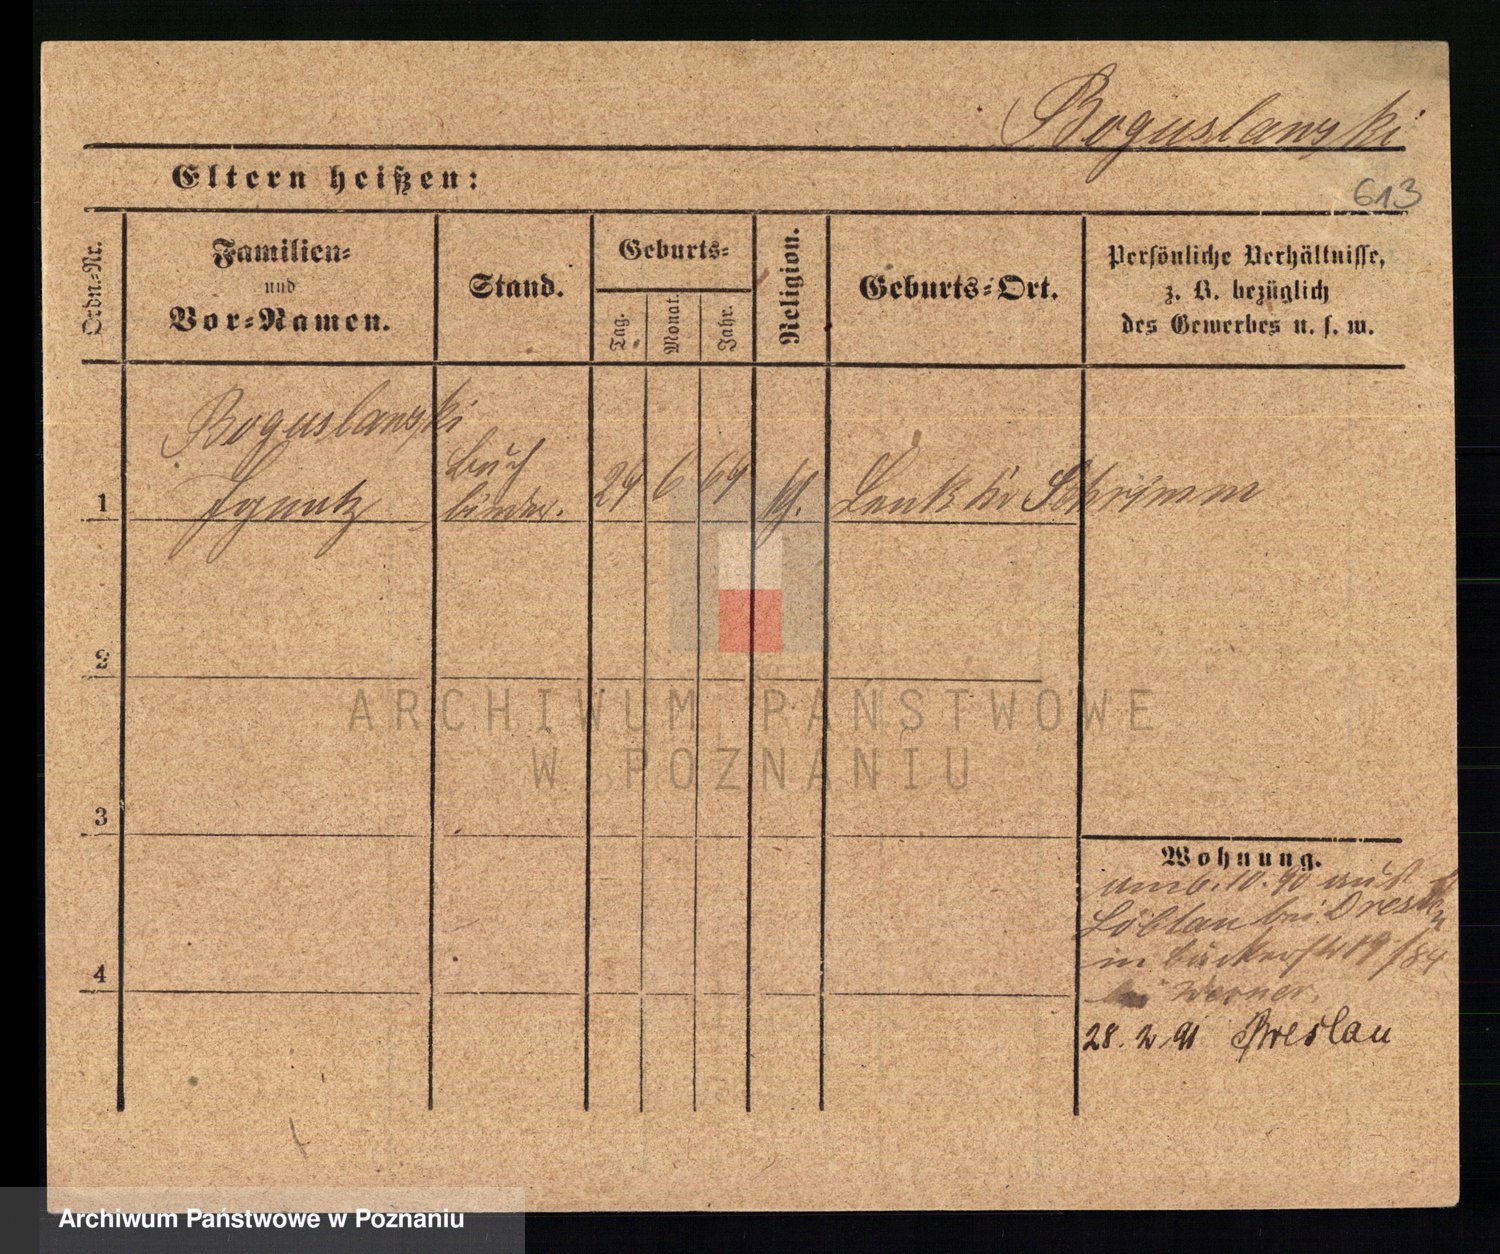 Boguslawski
Eltern heißen:
613
Ordn.-Nr.
Familien-
und
Vor-Namen.
Stand.
Geburts-
Tag.
Monat.
Jahr.
Religion.
Geburts-Ort.
Persönliche Verhältnisse,
z. B. bezüglich
des Gewerbes u. s. w.
1
Boguslawski
Ignatz
Buch
binder.
29
6
69
Schrimm
2
ARCHIWUM PAŃSTWOWE
W POZNANIU
3
Wohnung.
am 6.10.90 aus
Löbtau bei Dresden
in 19/84
bei Werner.
4
28.2.91 Breslau
Archiwum Państwowe w Poznaniu